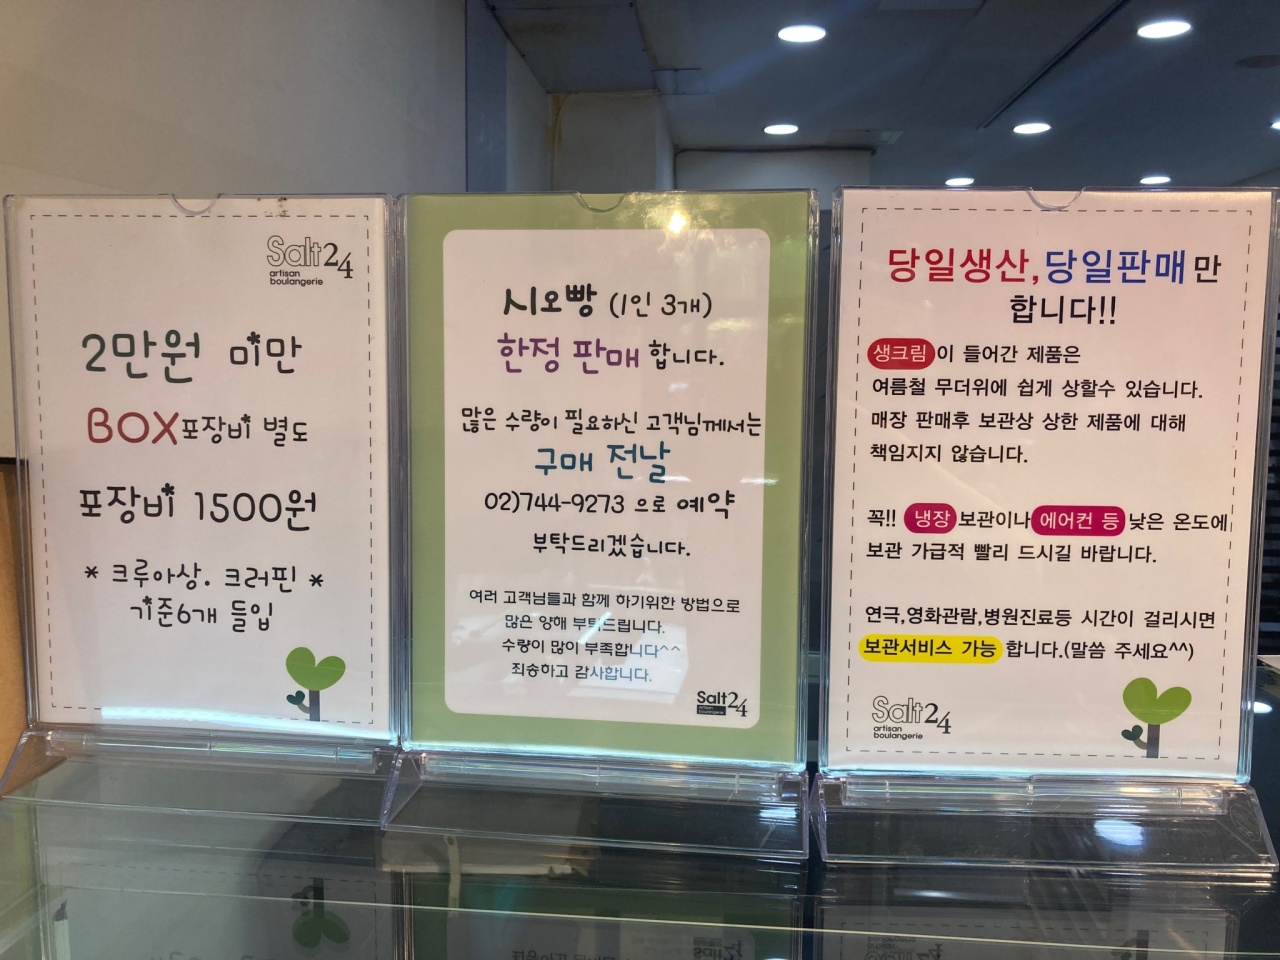 Salt24
artisan
boulangerie
2만원 미만
BOX포장비 별도
포장비 1500원
* 크루아상. 크러핀 *
기준6개 들입
시오빵 (1인 3개)
한정 판매 합니다.
많은 수량이 필요하신 고객님께서는
구매 전날
02)744-9273 으로 예약
부탁드리겠습니다.
여러 고객님들과 함께 하기위한 방법으로
많은 양해 부탁드립니다.
수량이 많이 부족합니다^^
죄송하고 감사합니다.
Salt24
artisan
boulangerie
당일생산,당일판매만
합니다!!
생크림이 들어간 제품은
여름철 무더위에 쉽게 상할수 있습니다.
매장 판매후 보관상 상한 제품에 대해
책임지지 않습니다.
꼭!! 냉장 보관이나 에어컨 등 낮은 온도에
보관 가급적 빨리 드시길 바랍니다.
연극,영화관람,병원진료등 시간이 걸리시면
보관서비스 가능 합니다.(말씀 주세요^^)
Salt24
artisan
boulangerie